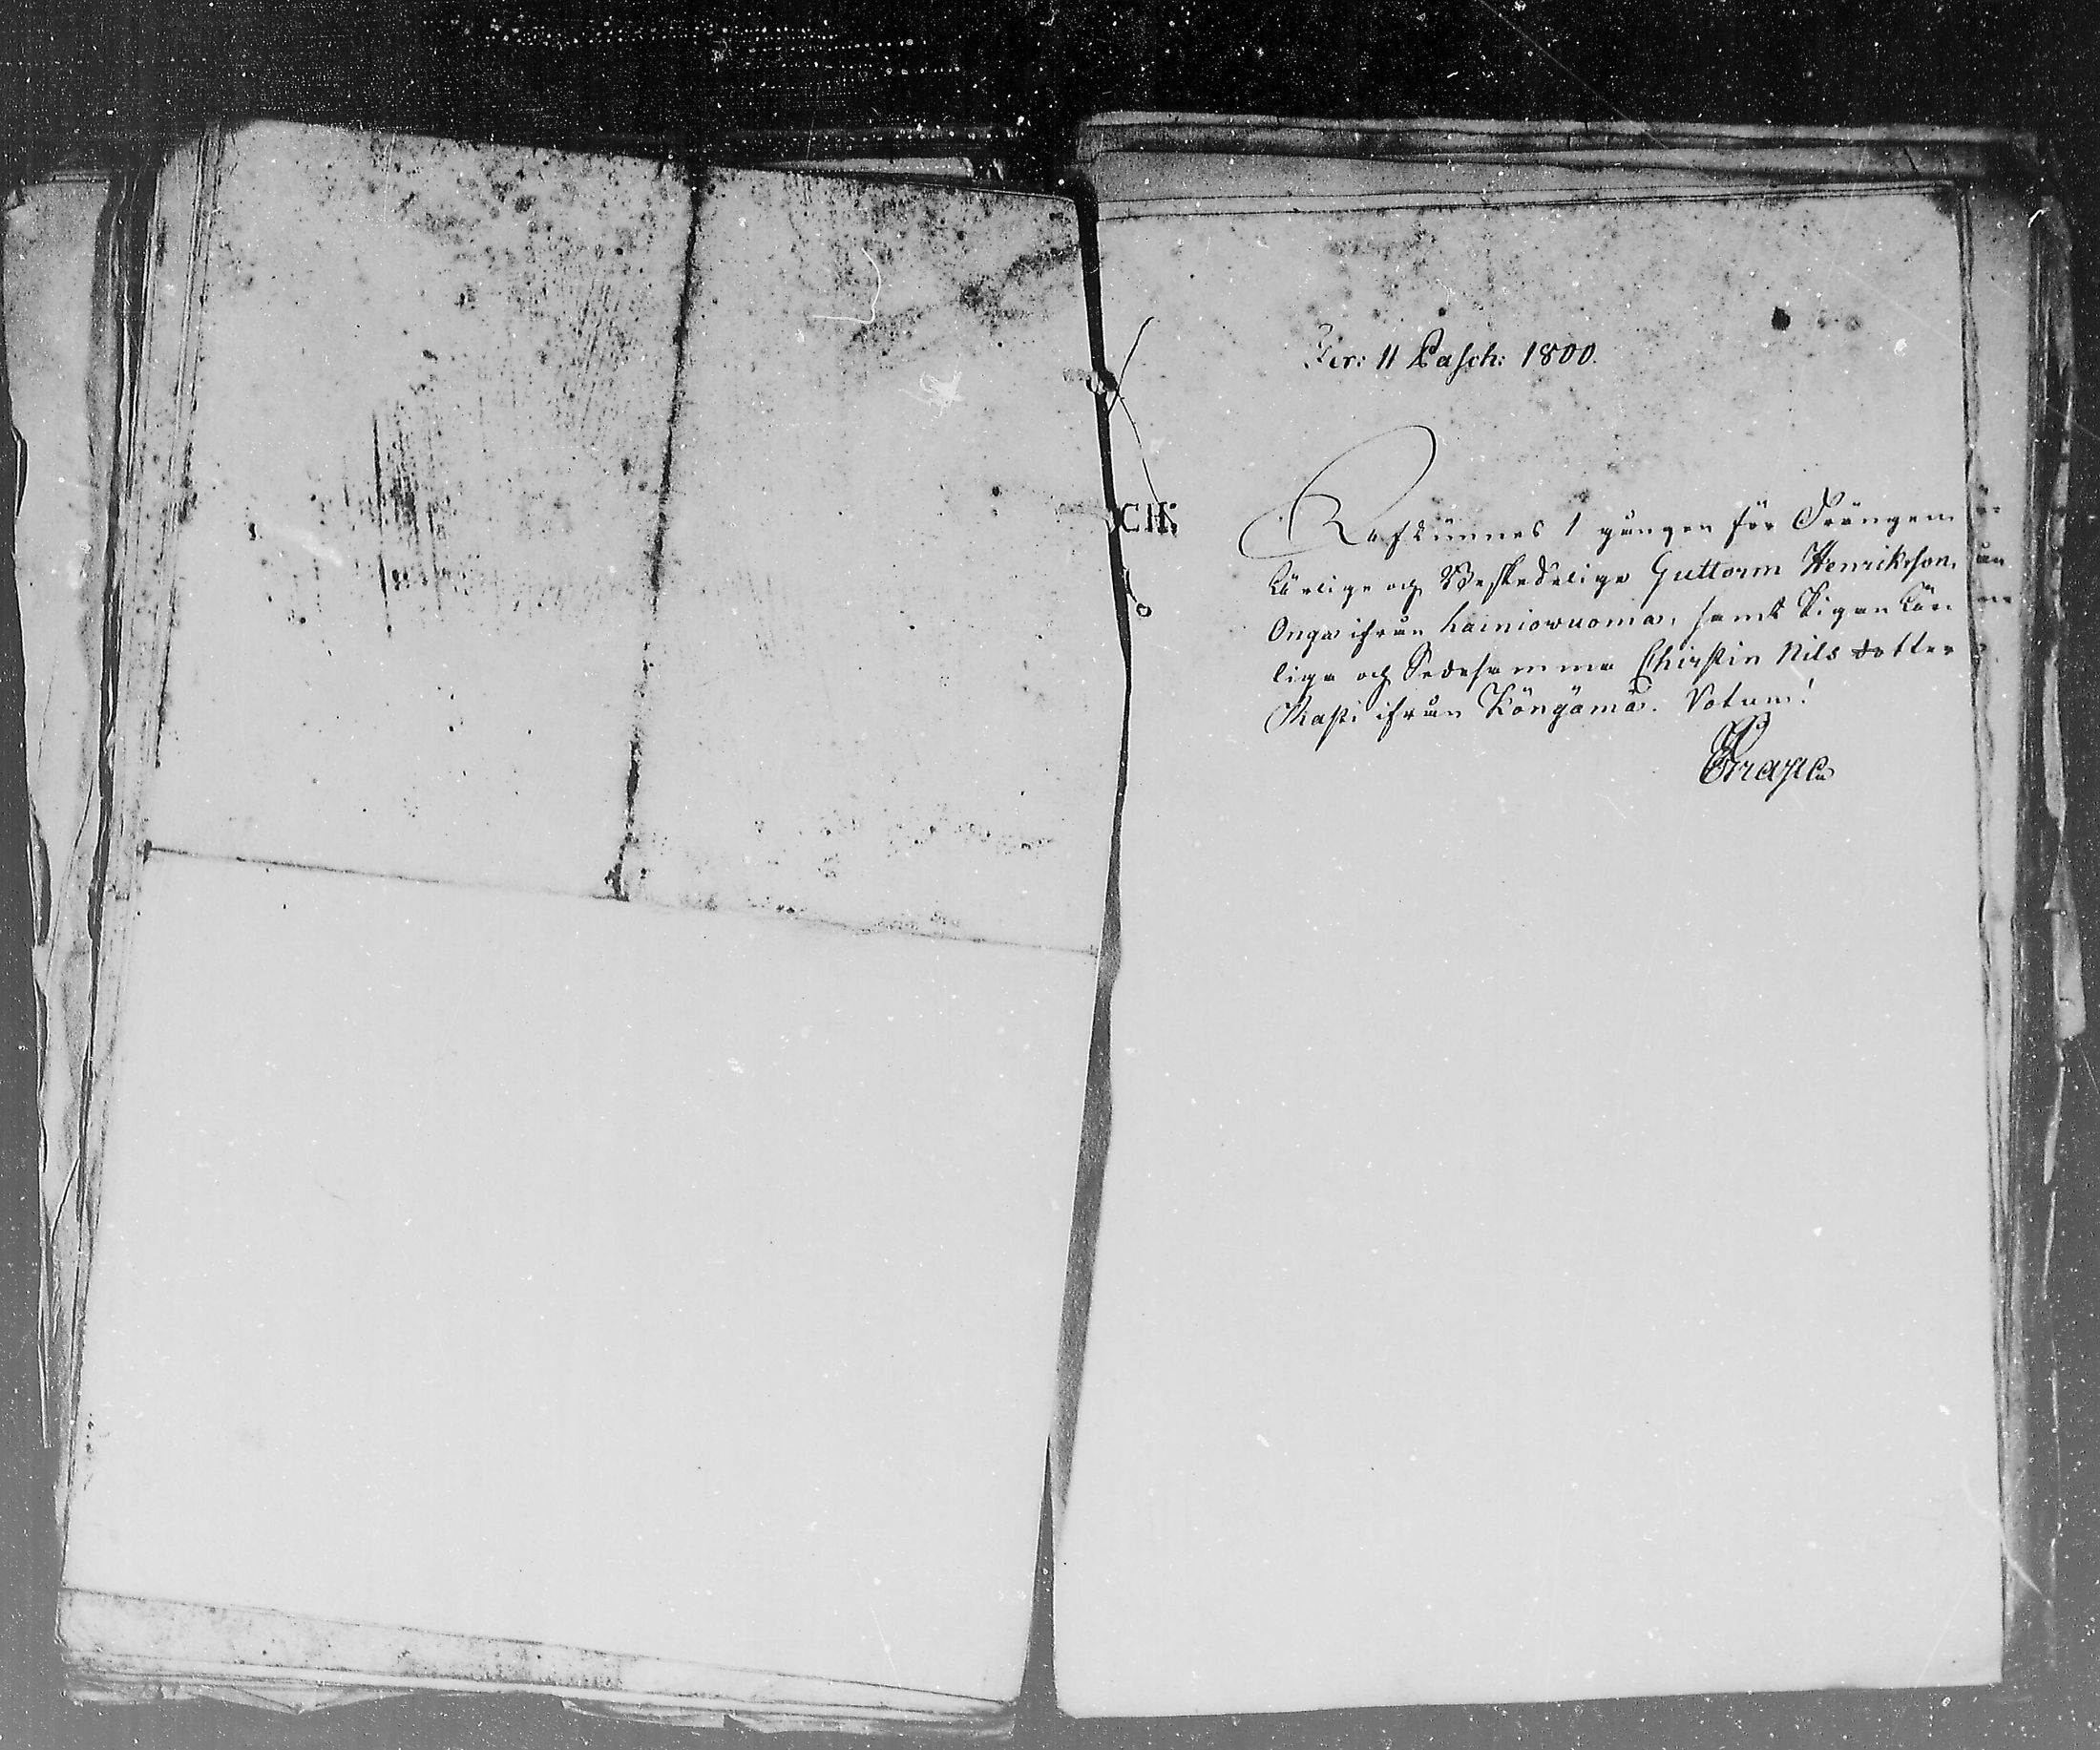 Fer: II Pasch: 1800.
CH:
Afkunnes 1 gången för Drängen
Ärlige och Beskedelige Guttorm Henrikson,
Onga ifrån Lainiowuoma, samt Pigan Är-
liga och Dedesamma Chirstin Nils dotter
Maßi ifrån Köngämä. Votum!